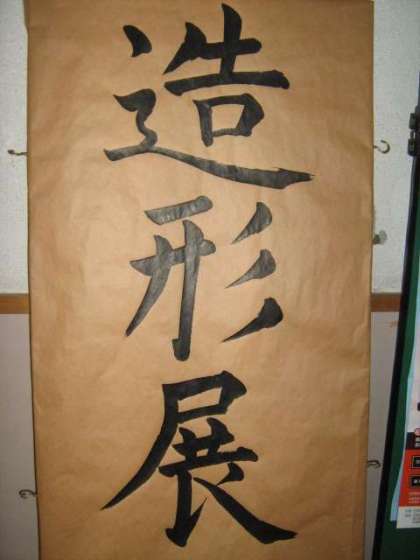 造形展